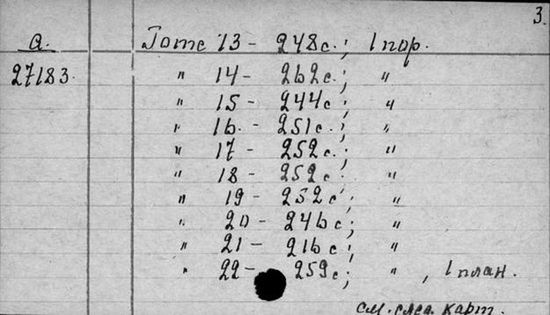 3.
а. Tome 13 - 248 с.; 1 пор.
27183. " 14 - 262 с.; "
" 15 - 244 с.; "
" 16 - 251 с.; "
" 17 - 252 с.; "
" 18 - 252 с.; "
" 19 - 252 с.; "
" 20 - 246 с.; "
" 21 - 216 с.; "
" 22 - 259 с.; " , 1 план.
см. след. карт.